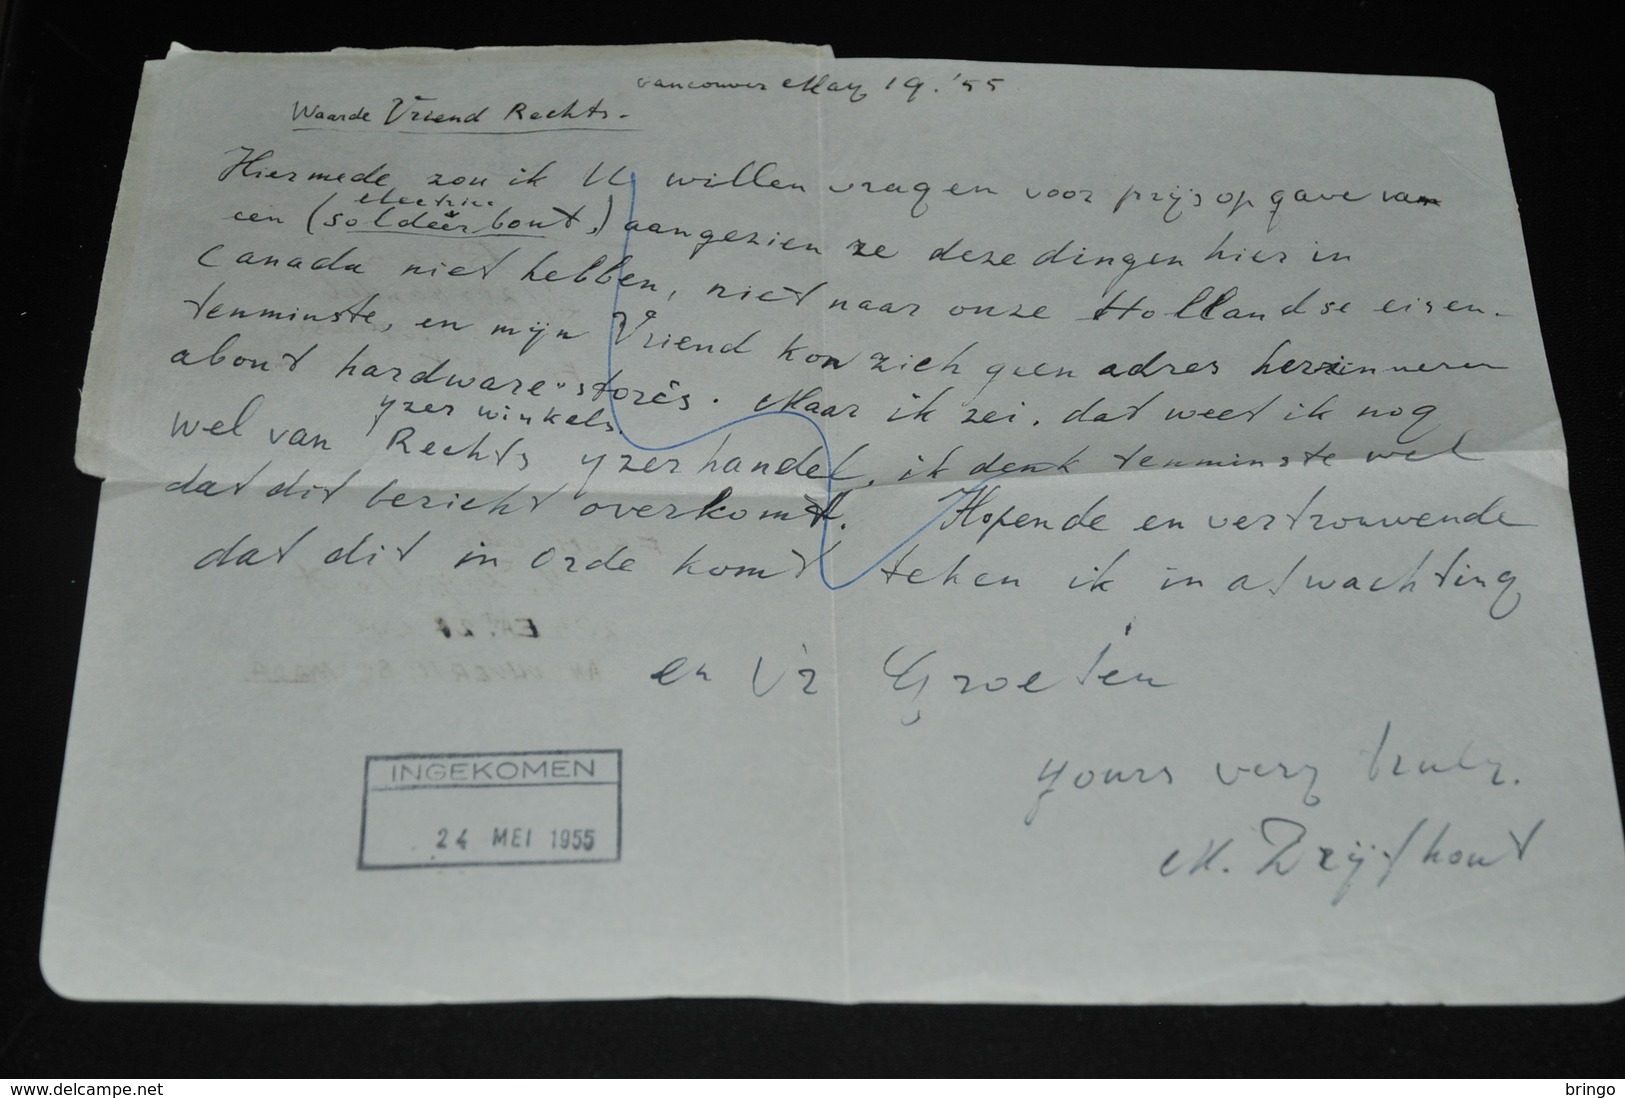 Vancouver May 19. '55
Waarde Vriend Rechts.
Hiermede zou ik U willen vragen voor prijsopgave van
electrice
een (soldeerbout,) aangezien ze deze dingen hier in
Canada niet hebben, niet naar onze Hollandse eisen.
tenminste, en mijn Vriend kon zich geen adres herzinneren
about hardware-stores. Maar ik zei, dat weet ik nog
yzer winkels.
wel van Rechts yzerhandel, ik denk tenminste wel
dat dit bericht overkomt. Hopende en vertrouwende
dat dit in orde komt teken ik in afwachting
en Vr Groeten
yours very truly.
M. Zrijfhout
INGEKOMEN
24 MEI 1955
www.delcampe.net
bringo